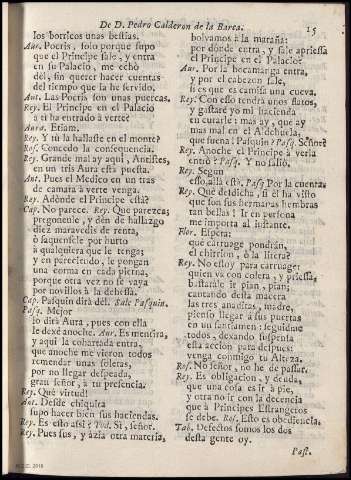 De D. Pedro Calderon de la Barca.
15
los borricos unas bestias.
Aur. Pocris, solo porque supo
que el Principe sale, y entra
en su Palacio, me echò
dèl, sin querer hacer cuentas
del tiempo que la he servido.
Ant. Las Pocris son unas puercas.
Rey. El Principe en el Palacio
a ti ha entrado à verte?
Aura. Etiam.
Rey. Y tù la hallaste en el monte?
Ros. Concedo la consequencia.
Rey. Grande mal ay aqui, Antistes,
en un tris Aura està puesta.
Ant. Pues el Medico en un tras
de camara à verte venga.
Rey. Adònde el Principe està?
Cap. No parece. Rey. Que parezca;
pregonenle, y dèn de hallazgo
diez maravedis de renta,
ò saquensele por hurto
à qualquiera que le tenga;
y en pareciendo, le pongan
una corma en cada pierna,
porque otra vez no se vaya
por novillos à la dehesa.
Cap. Pasquin dirà dèl. Sale Pasquin.
Pasq. Mejor
lo dirà Aura, pues con ella
le dexè anoche. Aur. Es mentira,
y aqui la cohartada entra,
que anoche me vieron todos
remendar unas soletas,
por no llegar despeada,
gran señor, à tu presencia.
Rey. Què virtud!
Ant. Desde chiquita
supo hacer bien sus haciendas.
Rey. Es esto assi? Tod. Si, señor.
Rey. Pues sus, y àzia otra materia,
bolvamos à la maraña:
por dònde entra, y sale apriessa
el Principe en el Palacio?
Aur. Por la bocamanga entra,
y por el cabezon sale,
si es que es camisa una cueva.
Rey. Con esso tendrà unos flatos,
y gastarè yo mi hacienda
en curarle: mas ay, que ay
mas mal en el Aldehuela,
que suena! Pasquin? Pasq. Señor?
Rey. Anoche el Principe à verla
entrò? Pasq. Y no saliò.
Rey. Segun
esso, allà està. Pasq. Por la cuenta.
Rey. Què desdicha, si èl ha visto
que son sus hermanas hembras
tan bellas! Ir en persona
me importa al instante.
Flor. Espera:
què carruage pondràn,
el chirrion, ò la litera?
Rey. No estoy para carruage;
quien và con colera, y priessa,
bastarále ir pian, pian;
cantando desta manera
las tres anaditas, madre,
pienso llegar à sus puertas
en un santiamen: seguidme
todos, dexando suspensa
esta accion para despues:
venga conmigo tu Alteza.
Ros. No señor, no he de passar.
Rey. Es obligacion, y deuda,
que una cosa es ir à pie,
y otra no ir con la decencia
que à Principes Estrangeros
se debe. Ros. Esto es obediencia.
Tab. Defectos somos los dos
desta gente oy.
Past.